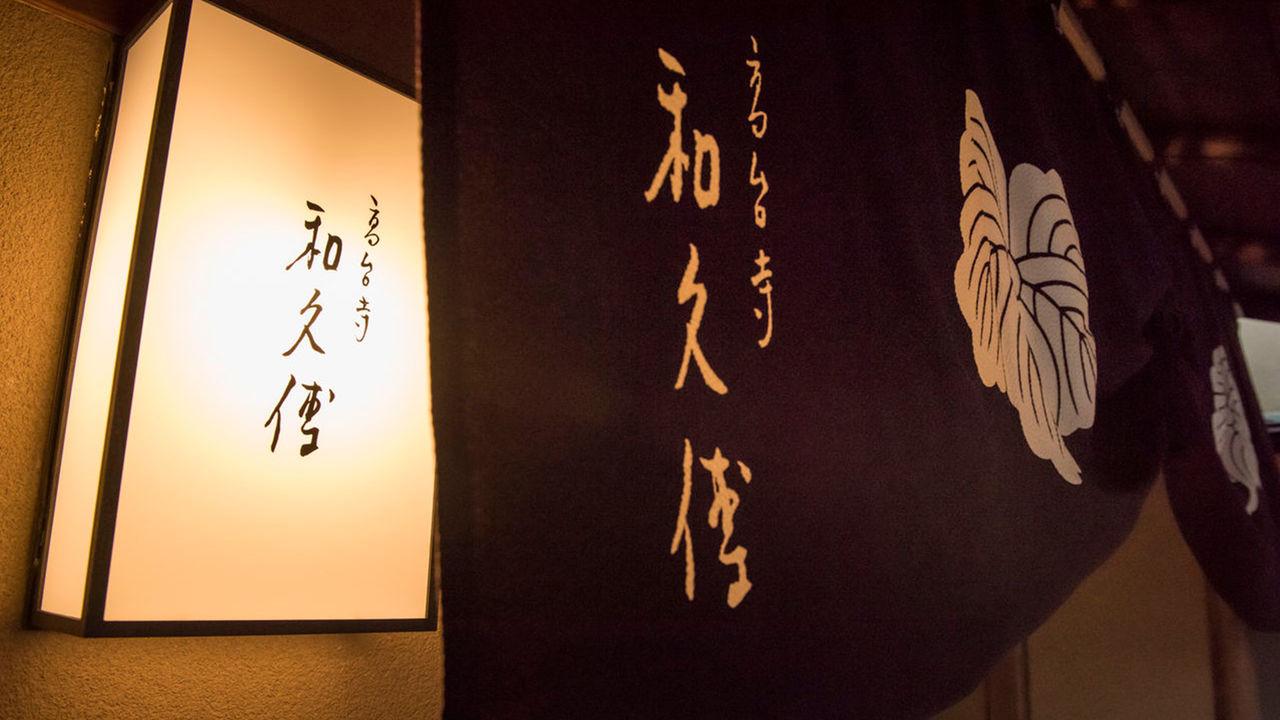 高台寺
和久傳
高台寺
和久傳